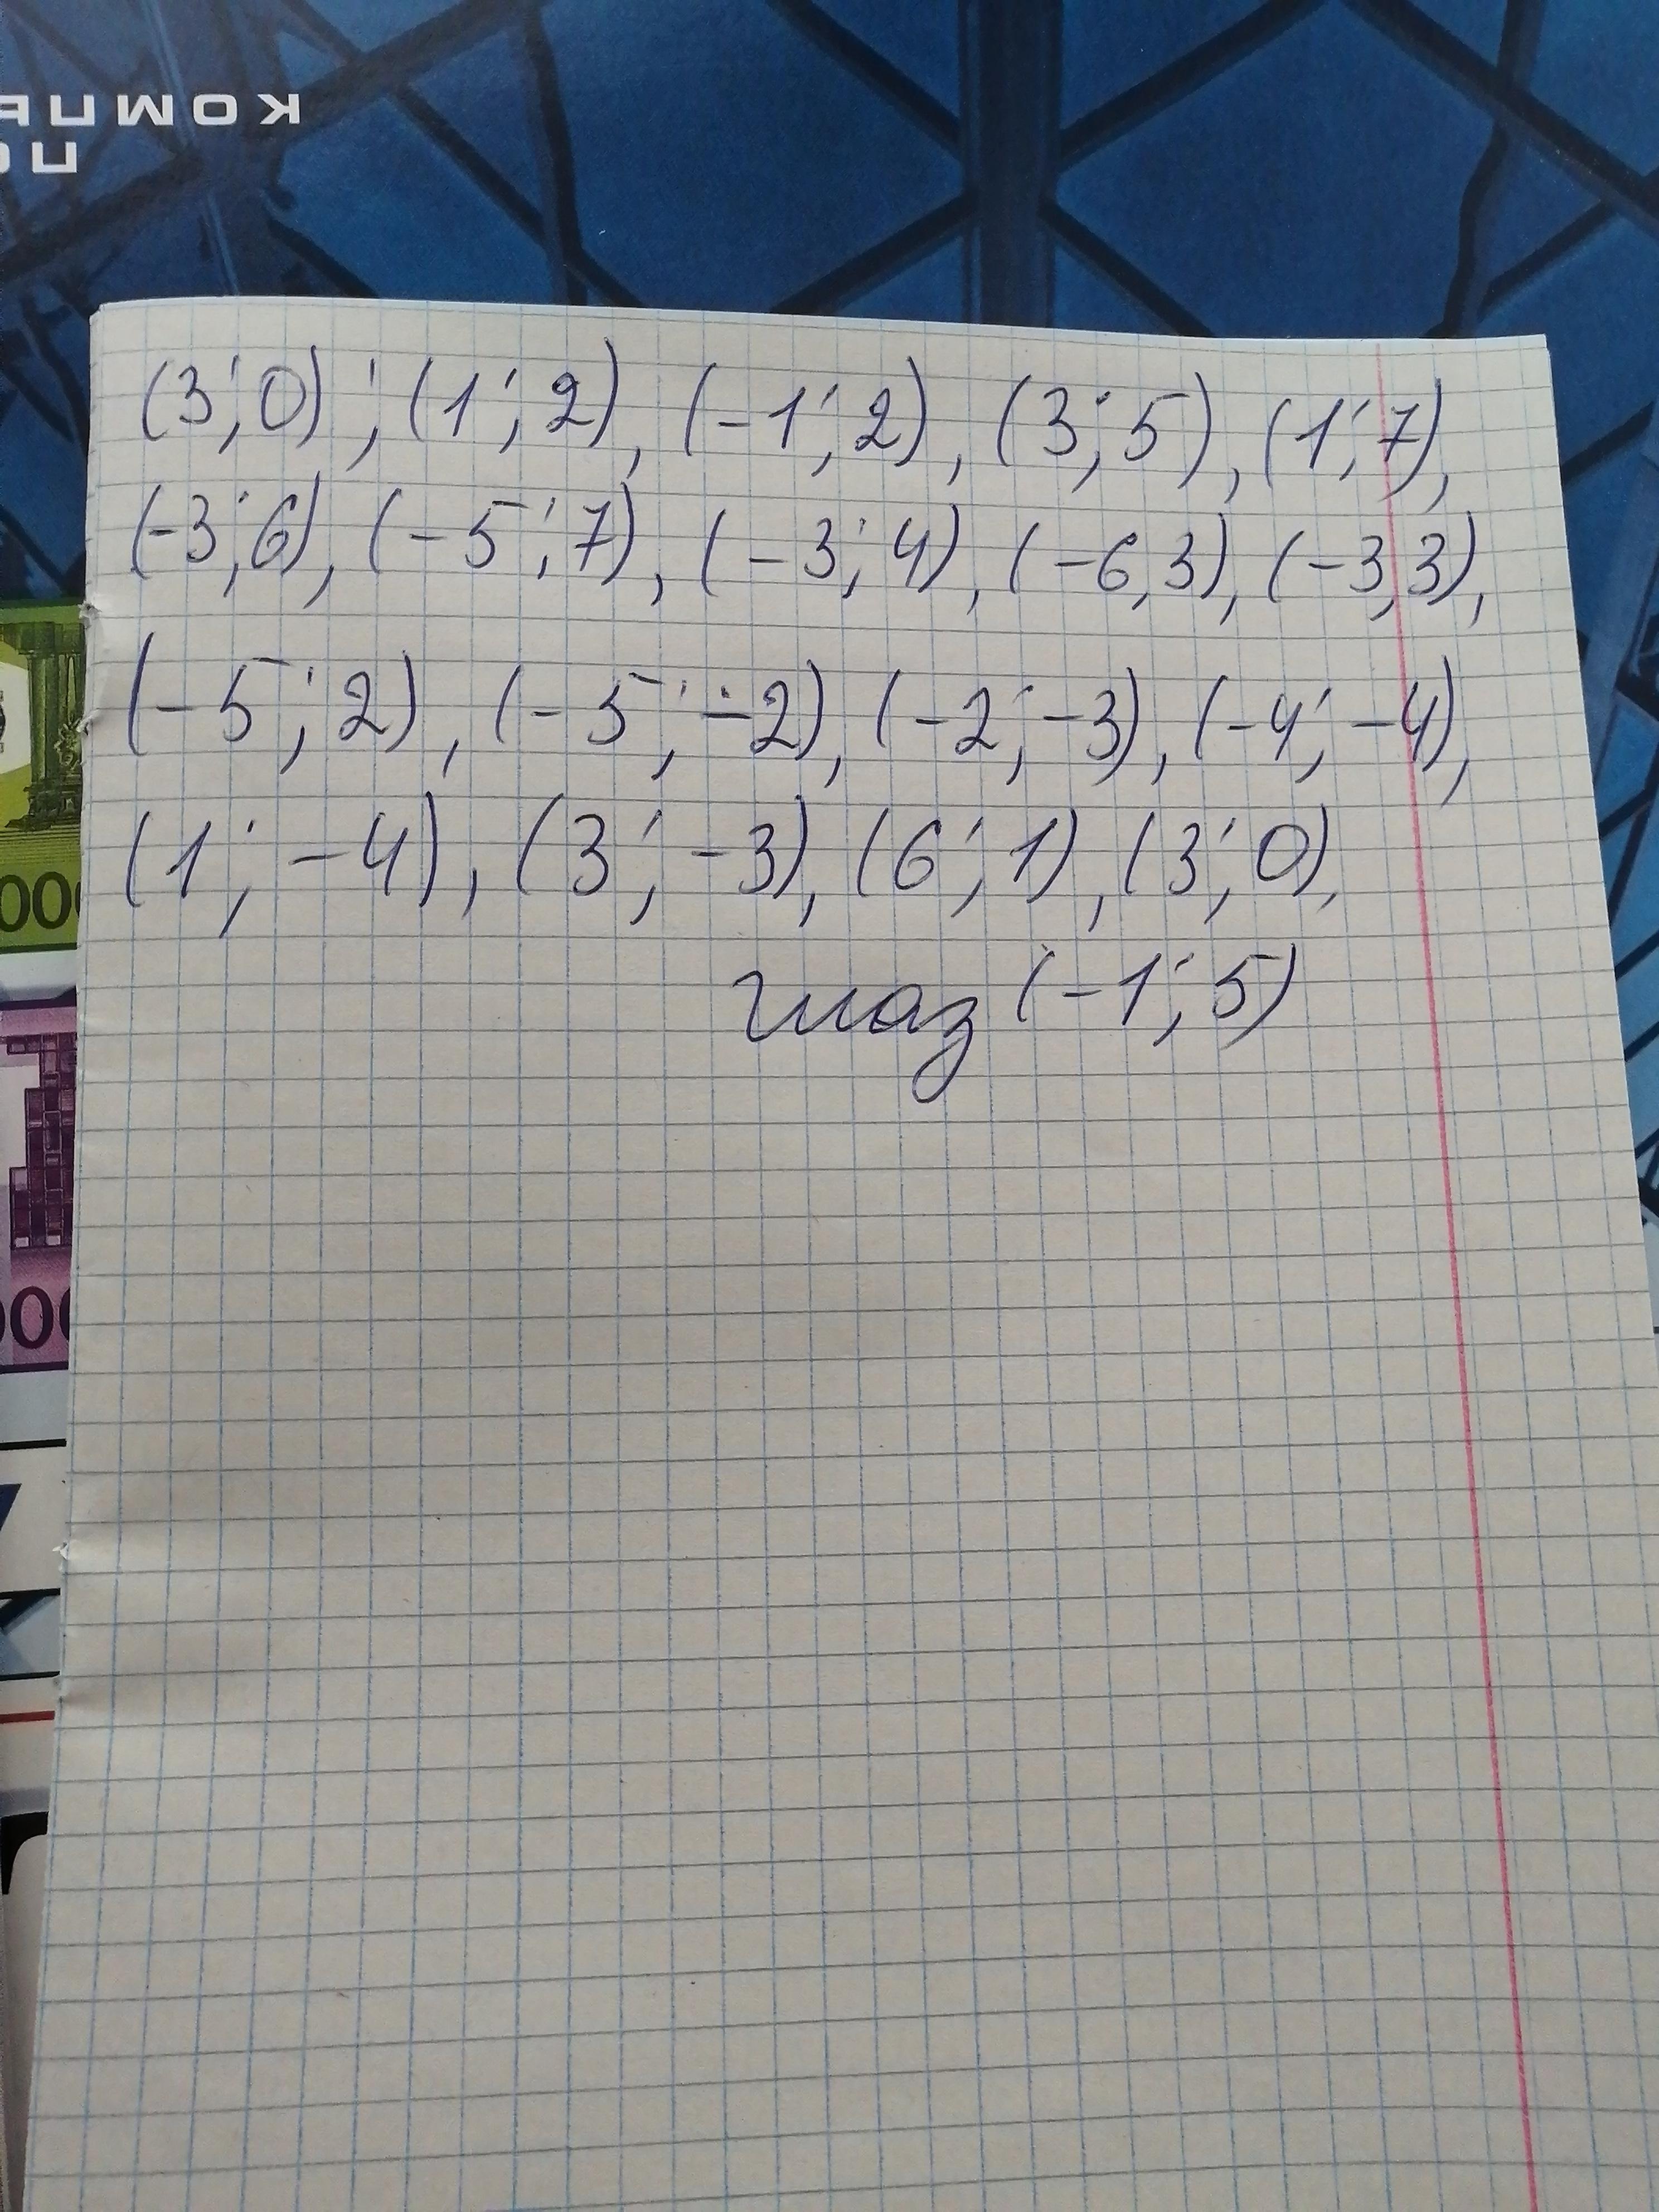 КОМПЬ
ПО
(3;0);(1;2),(-1;2),(3;5),(1;7),
(-3;6),(-5;7),(-3;4),(-6,3),(-3,3),
(-5;2),(-5;-2),(-2;-3),(-4;-4),
(1;-4),(3;-3),(6;1),(3;0),
глаз (-1;5)